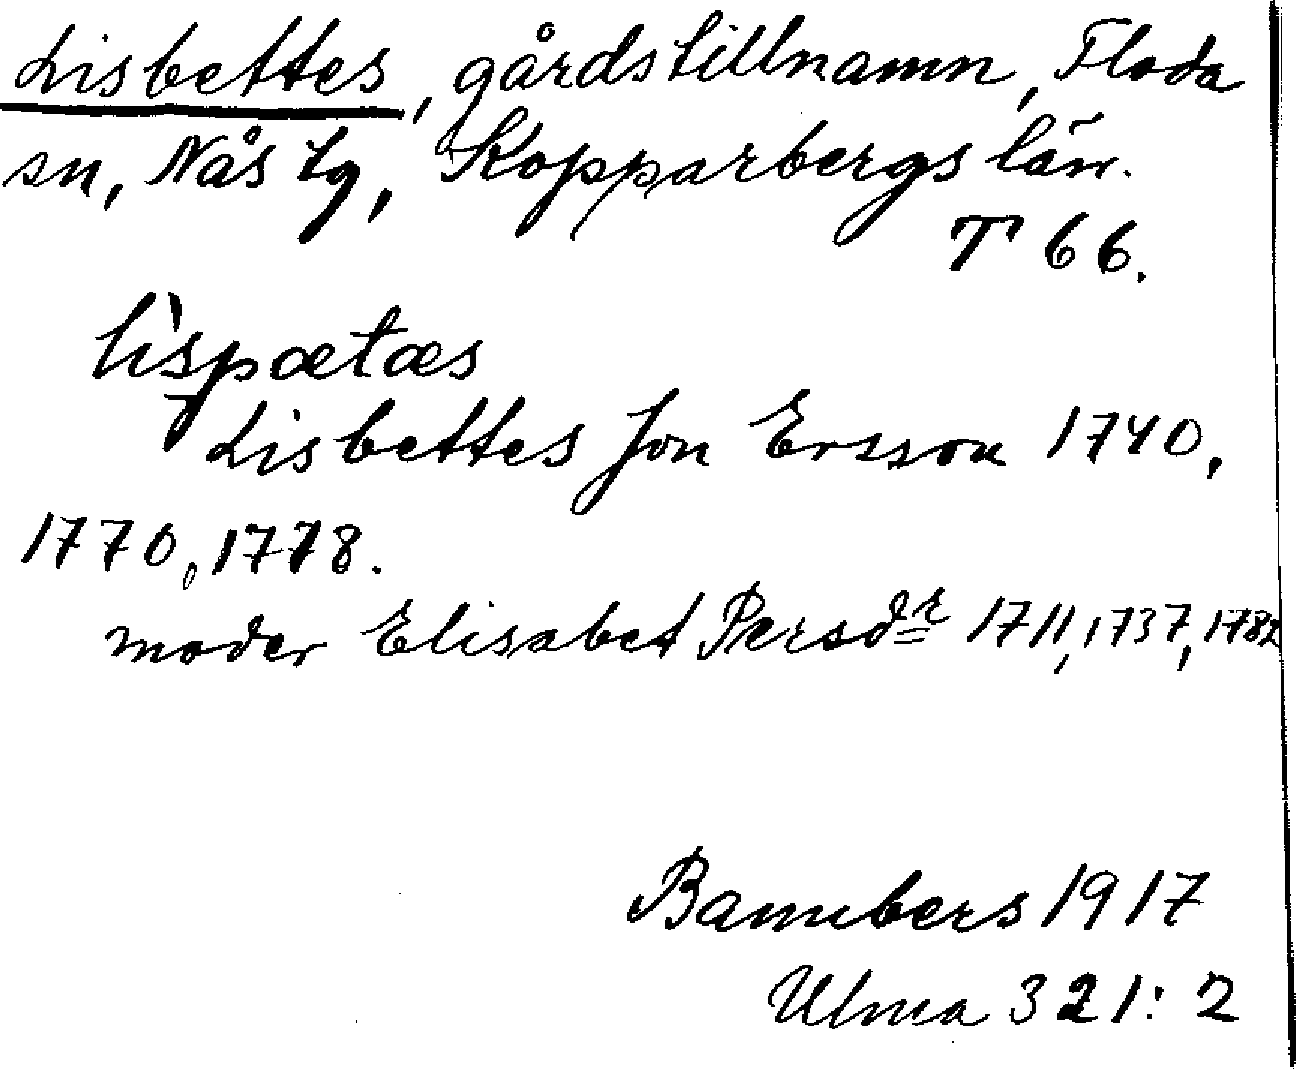 Lisbettes, gårdstillnamn, Floda
sn, Nås tg, Kopparbergs län.
T 66.
lìspætæs
Lisbettes Jon Ersson 1740,
1770, 1778.
moder Elisabet Persdr 1711, 1737, 1782
Bannbers 1917
Ulma 321:2